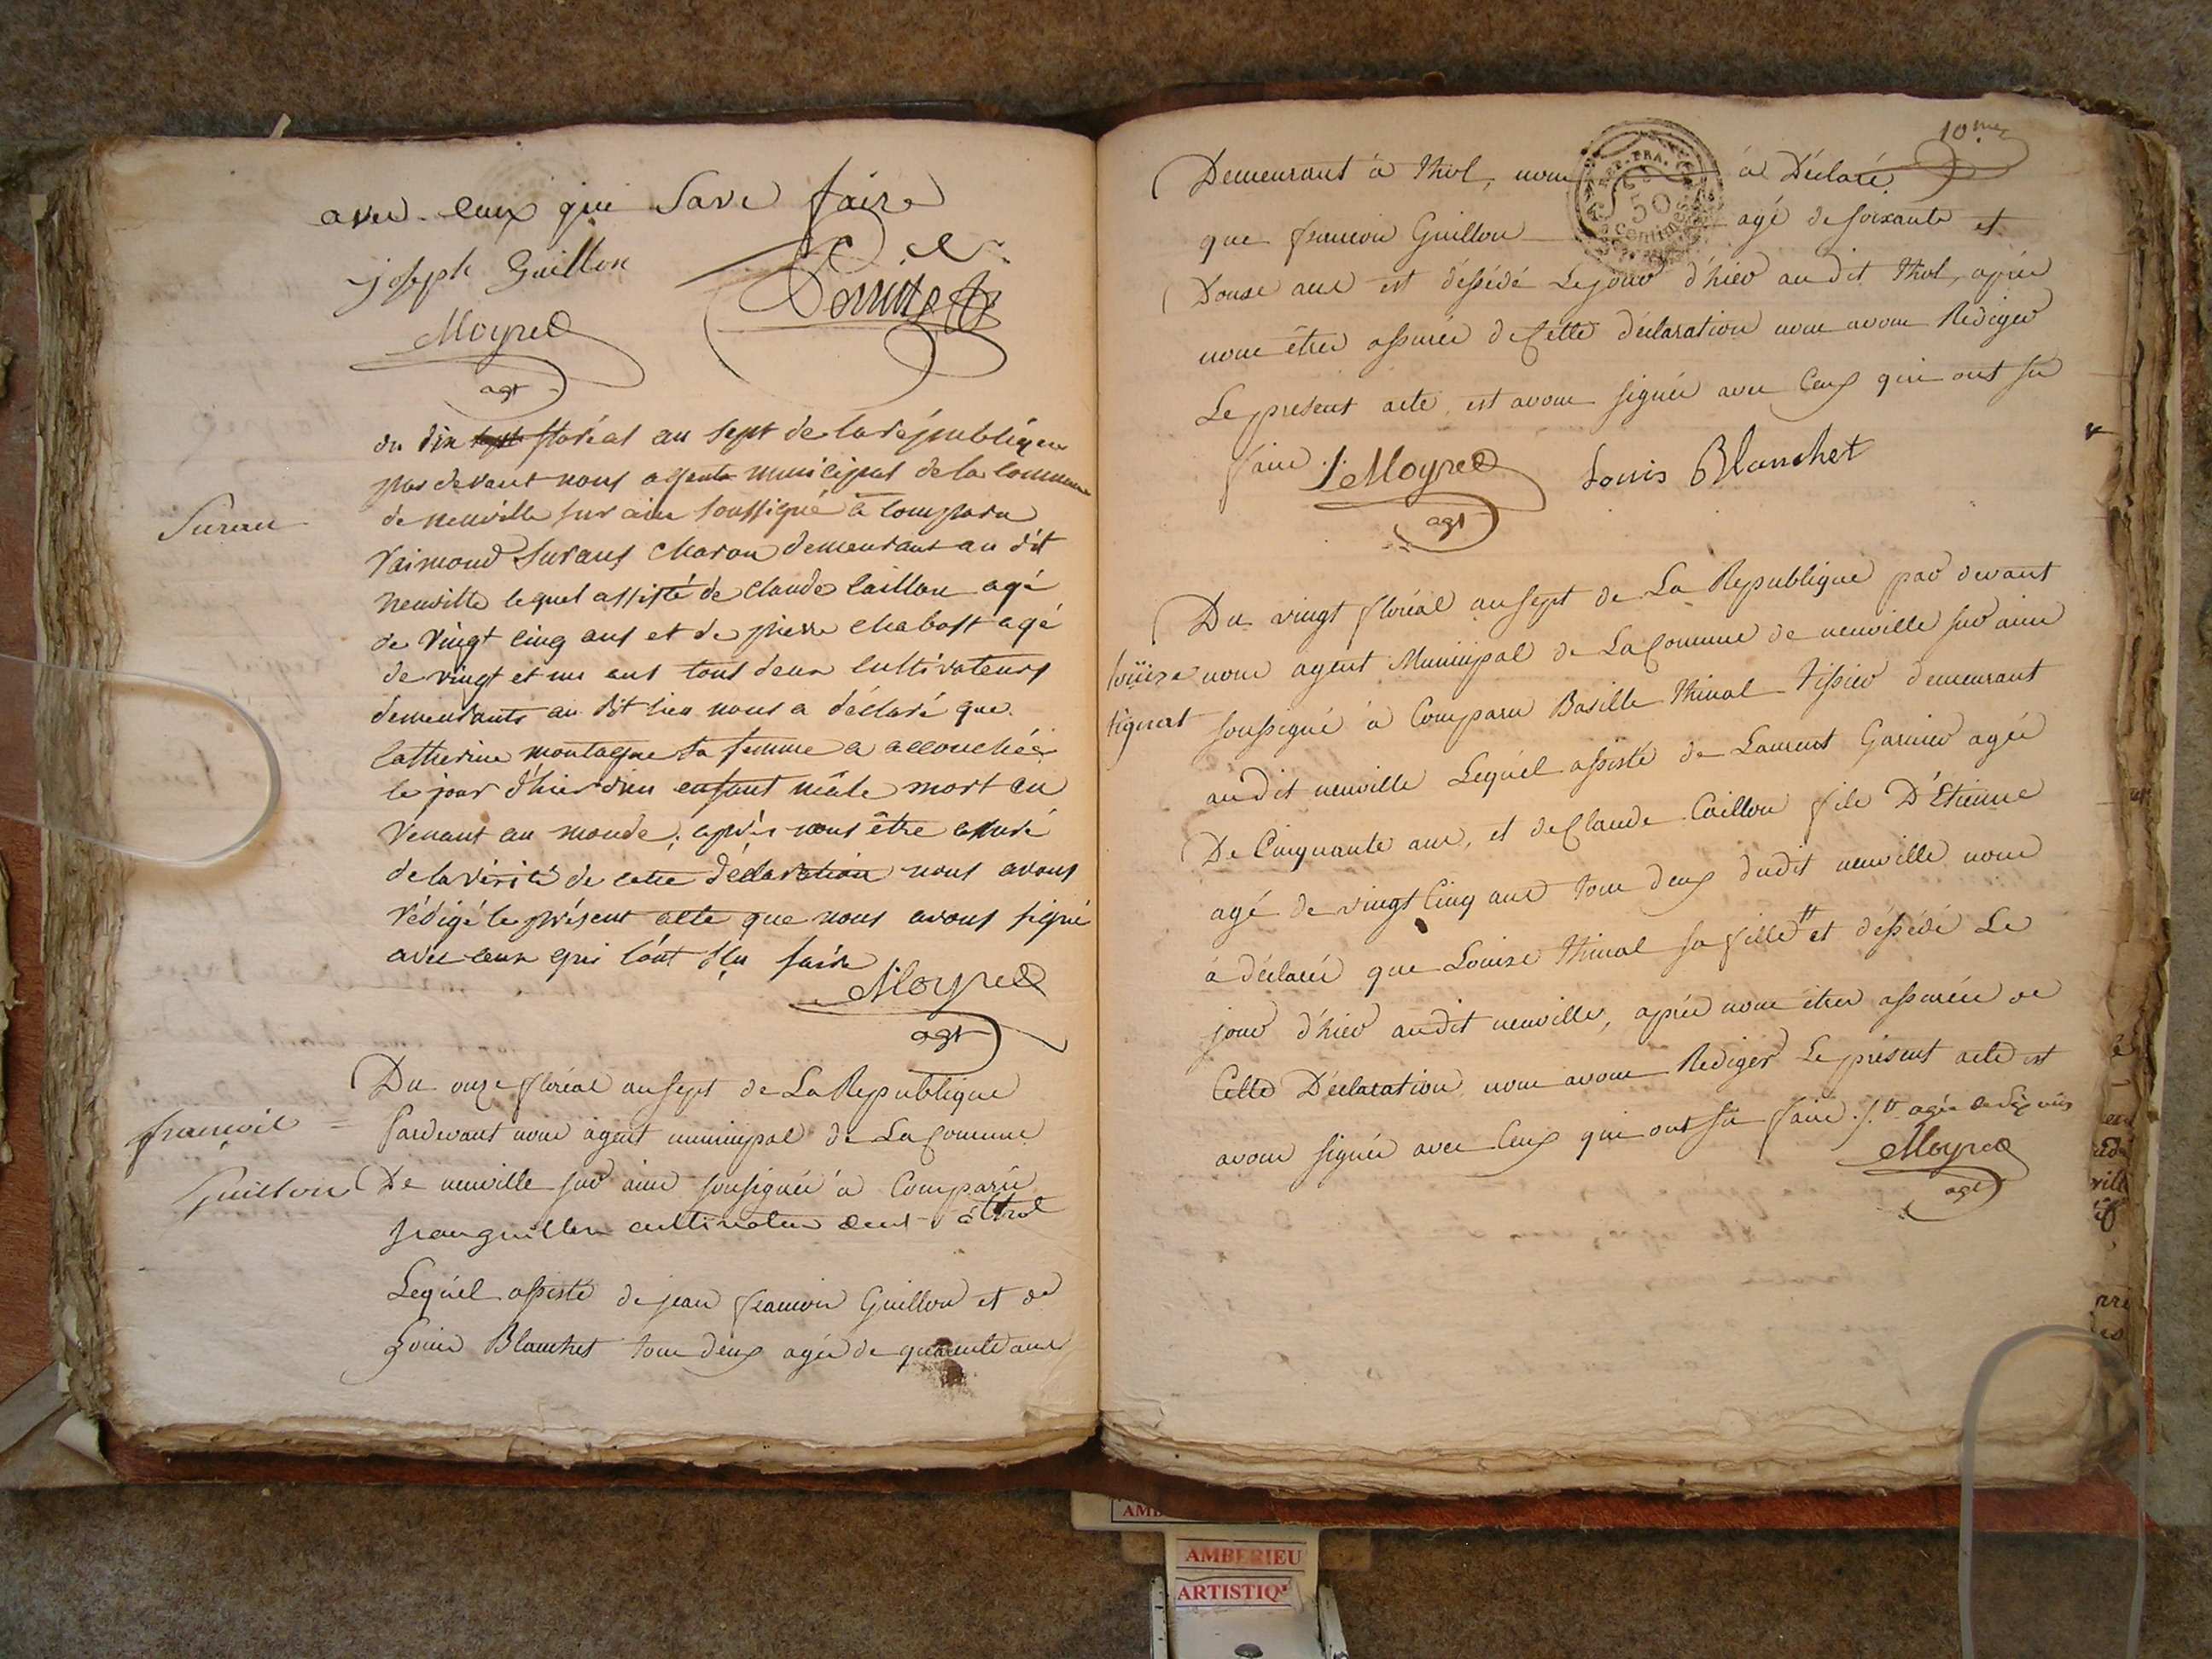 avec ceux qui save faire
joseph Guillon
Moyret
agt
du dix floréal an sept de la république
par devant nous agent municipal de la commune
de neuville sur ain soussigné à comparu
Suran
Raimond Surans Charon demeurant au dit
neuville lequel assisté de claude Caillon agé
de vingt cinq ans et de pierre chabost agé
de vingt et un ans tous deux cultivateurs
demeurants au dit lieu nous a déclaré que
Catherine montagne sa femme a accouchée
le jour d'hier d'un enfant mâle mort en
venant au monde, après nous être assuré
de la vérité de cette déclaration nous avons
rédigé le présent acte que nous avons signé
avec ceux qui l'ont sçu faire
Moyret
agt
Du onze floréal an sept de La Republique
françois =
Pardevant nous agent municipal de La Comune
Guillon
De neuville sur ain sousigné à Comparu
cultivateur à thol
Lequel assisté de jean francois Guillon et de
Louis Blanchet tous deux agés de quarente ans
10me
Demeurant à thol, nous à Déclaré
REP. FRA.
50
centimes
que francois Guillon agé de soixante et
Douze ans est déssédé Le jour d'hier au dit thol, aprés
nous êtres assurés de Cette déclaration nous avons Rediger
Le present acte est avons signés avec Ceux qui ont su
faire ./. Moyret Louis Blanchet
agt
Du vingt floréal an sept de La Republique par devant
louise nous agent Municipal de La Comune de neuville sur ain
soussigné à Comparu Basille thinal Tissier demeurant
audit neuville Lequel assisté de Laurent Garnier agés
De Cinquante ans, et de Claude Caillon fils D'Etienne
agé de vingt Cinq ans tous deux dudit neuville nous
à déclarés que Louise thinal sa fille tt et déssédé Le
jour d'hier audit neuville, aprés nous êtres assurés de
Cette Déclaration nous avons Rediger Le présent acte est
avons signés avec Ceux qui ont su faire ./. tt agée de
Moyret
agt
AMBERIEU
ARTISTIQ